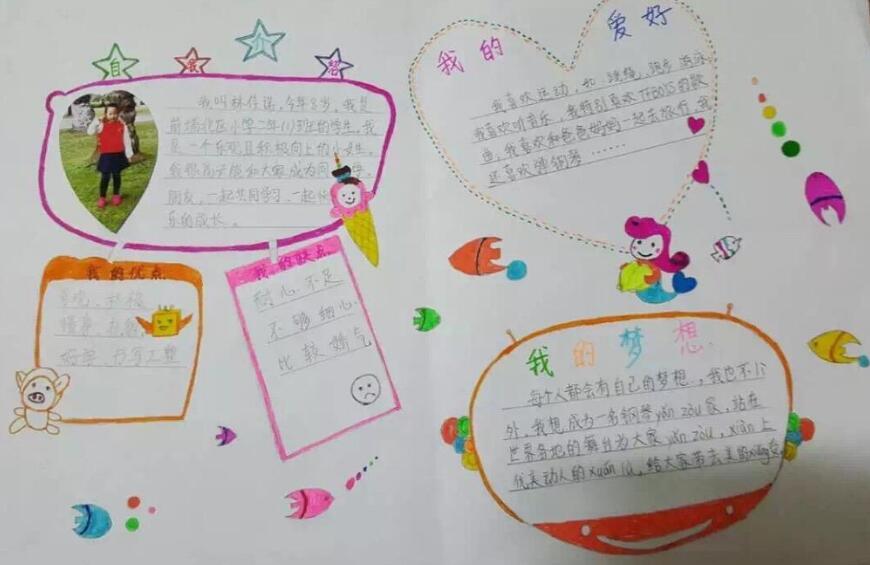 自我介绍
我叫林佳诺,今年8岁,我是
前埔北区小学二年(1)班的学生。我
是一个乐观且积极向上的小女生。
我很高兴能和大家成为同
朋友,一起共同学习,一起快
乐的成长。
我的优点
懂事、
好学、书写工整
我的缺点
耐心不足
不够细心
比较娇气
我的爱好
我喜欢运动,如:跳绳,跑步,游泳
我喜欢听音乐,我特别喜欢TFBOYS的歌
曲,我喜欢和爸爸妈妈一起去旅行,我
还喜欢弹钢琴……
我的梦想
每个人都会有自己的梦想,我也不例
外,我想成为一名钢琴yǎn zòu家,站在
世界各地的舞台为大家yǎn zòu,xiàn上
优美动人的xuán lǜ,给大家带去美的xiǎng受